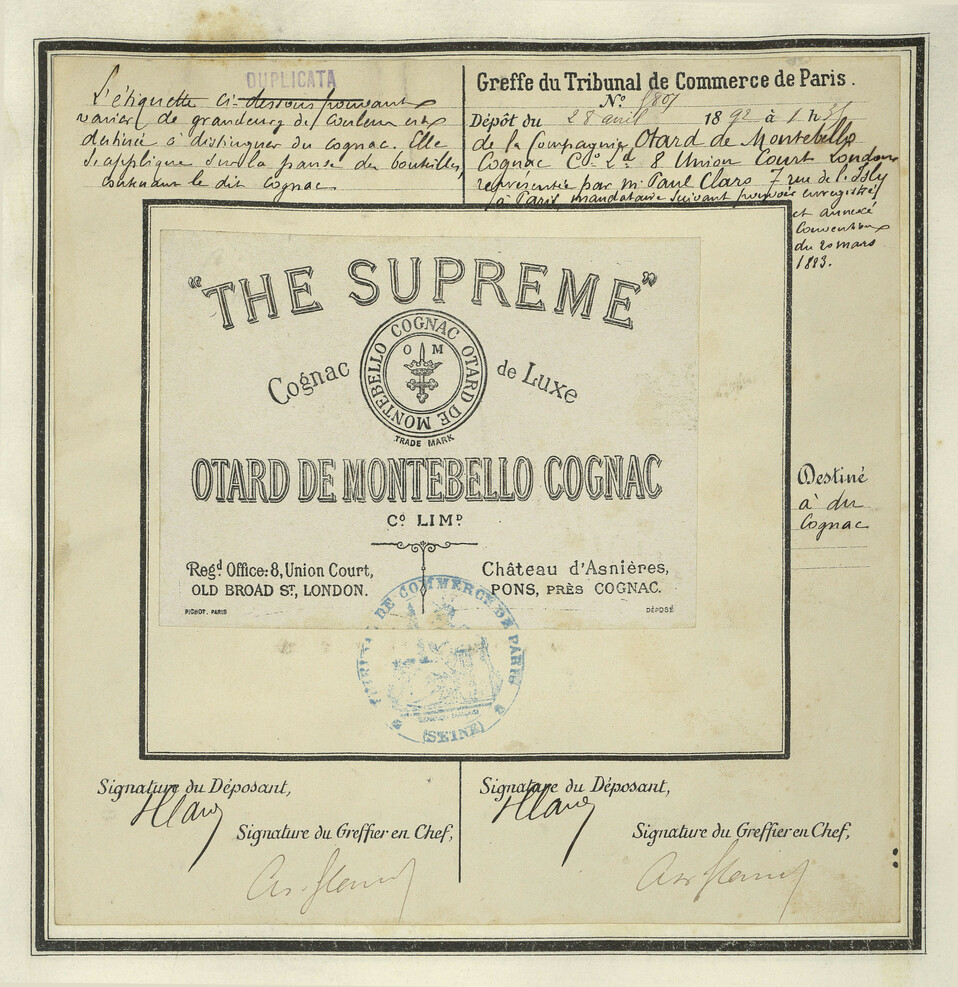 DUPLICATA
L'étiquette ci-dessous pouvant
varier de grandeurs de couleurs est
destiné à distinguer du cognac. Elle
s'applique sur la panse des bouteilles
contenant le dit cognac
Greffe du Tribunal de Commerce de Paris.
N°
Dépôt du 28 avril 1892 à 1 h 35
de la Compagnie Otard de Montebello
Cognac Co Ld 8 Union Court London
représentée par Mr Paul Clars 7 rue de l'Isly
à Paris, mandataire suivant pouvoir enregistré
et annexé
Convention
du 20 mars
1883.
"THE SUPREME"
COGNAC OTARD DE MONTEBELLO
O M
Cognac de Luxe
TRADE MARK
OTARD DE MONTEBELLO COGNAC
Co LIMD
Regd Office: 8, Union Court,
OLD BROAD ST, LONDON.
Château d'Asnières,
PONS, PRÈS COGNAC.
PICHOT. PARIS
DÉPOSÉ
TRIBUNAL DE COMMERCE DE PARIS
(SEINE)
Destiné
à du
Cognac
Signature du Déposant,
Signature du Greffier en Chef,
Signature du Déposant,
Signature du Greffier en Chef,